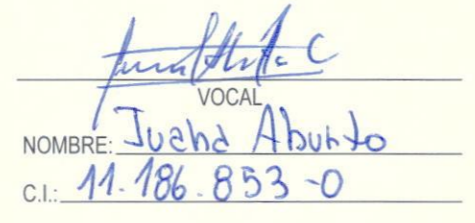 VOCAL
NOMBRE: Juana Aburto
C.I.: 11.186.853-0